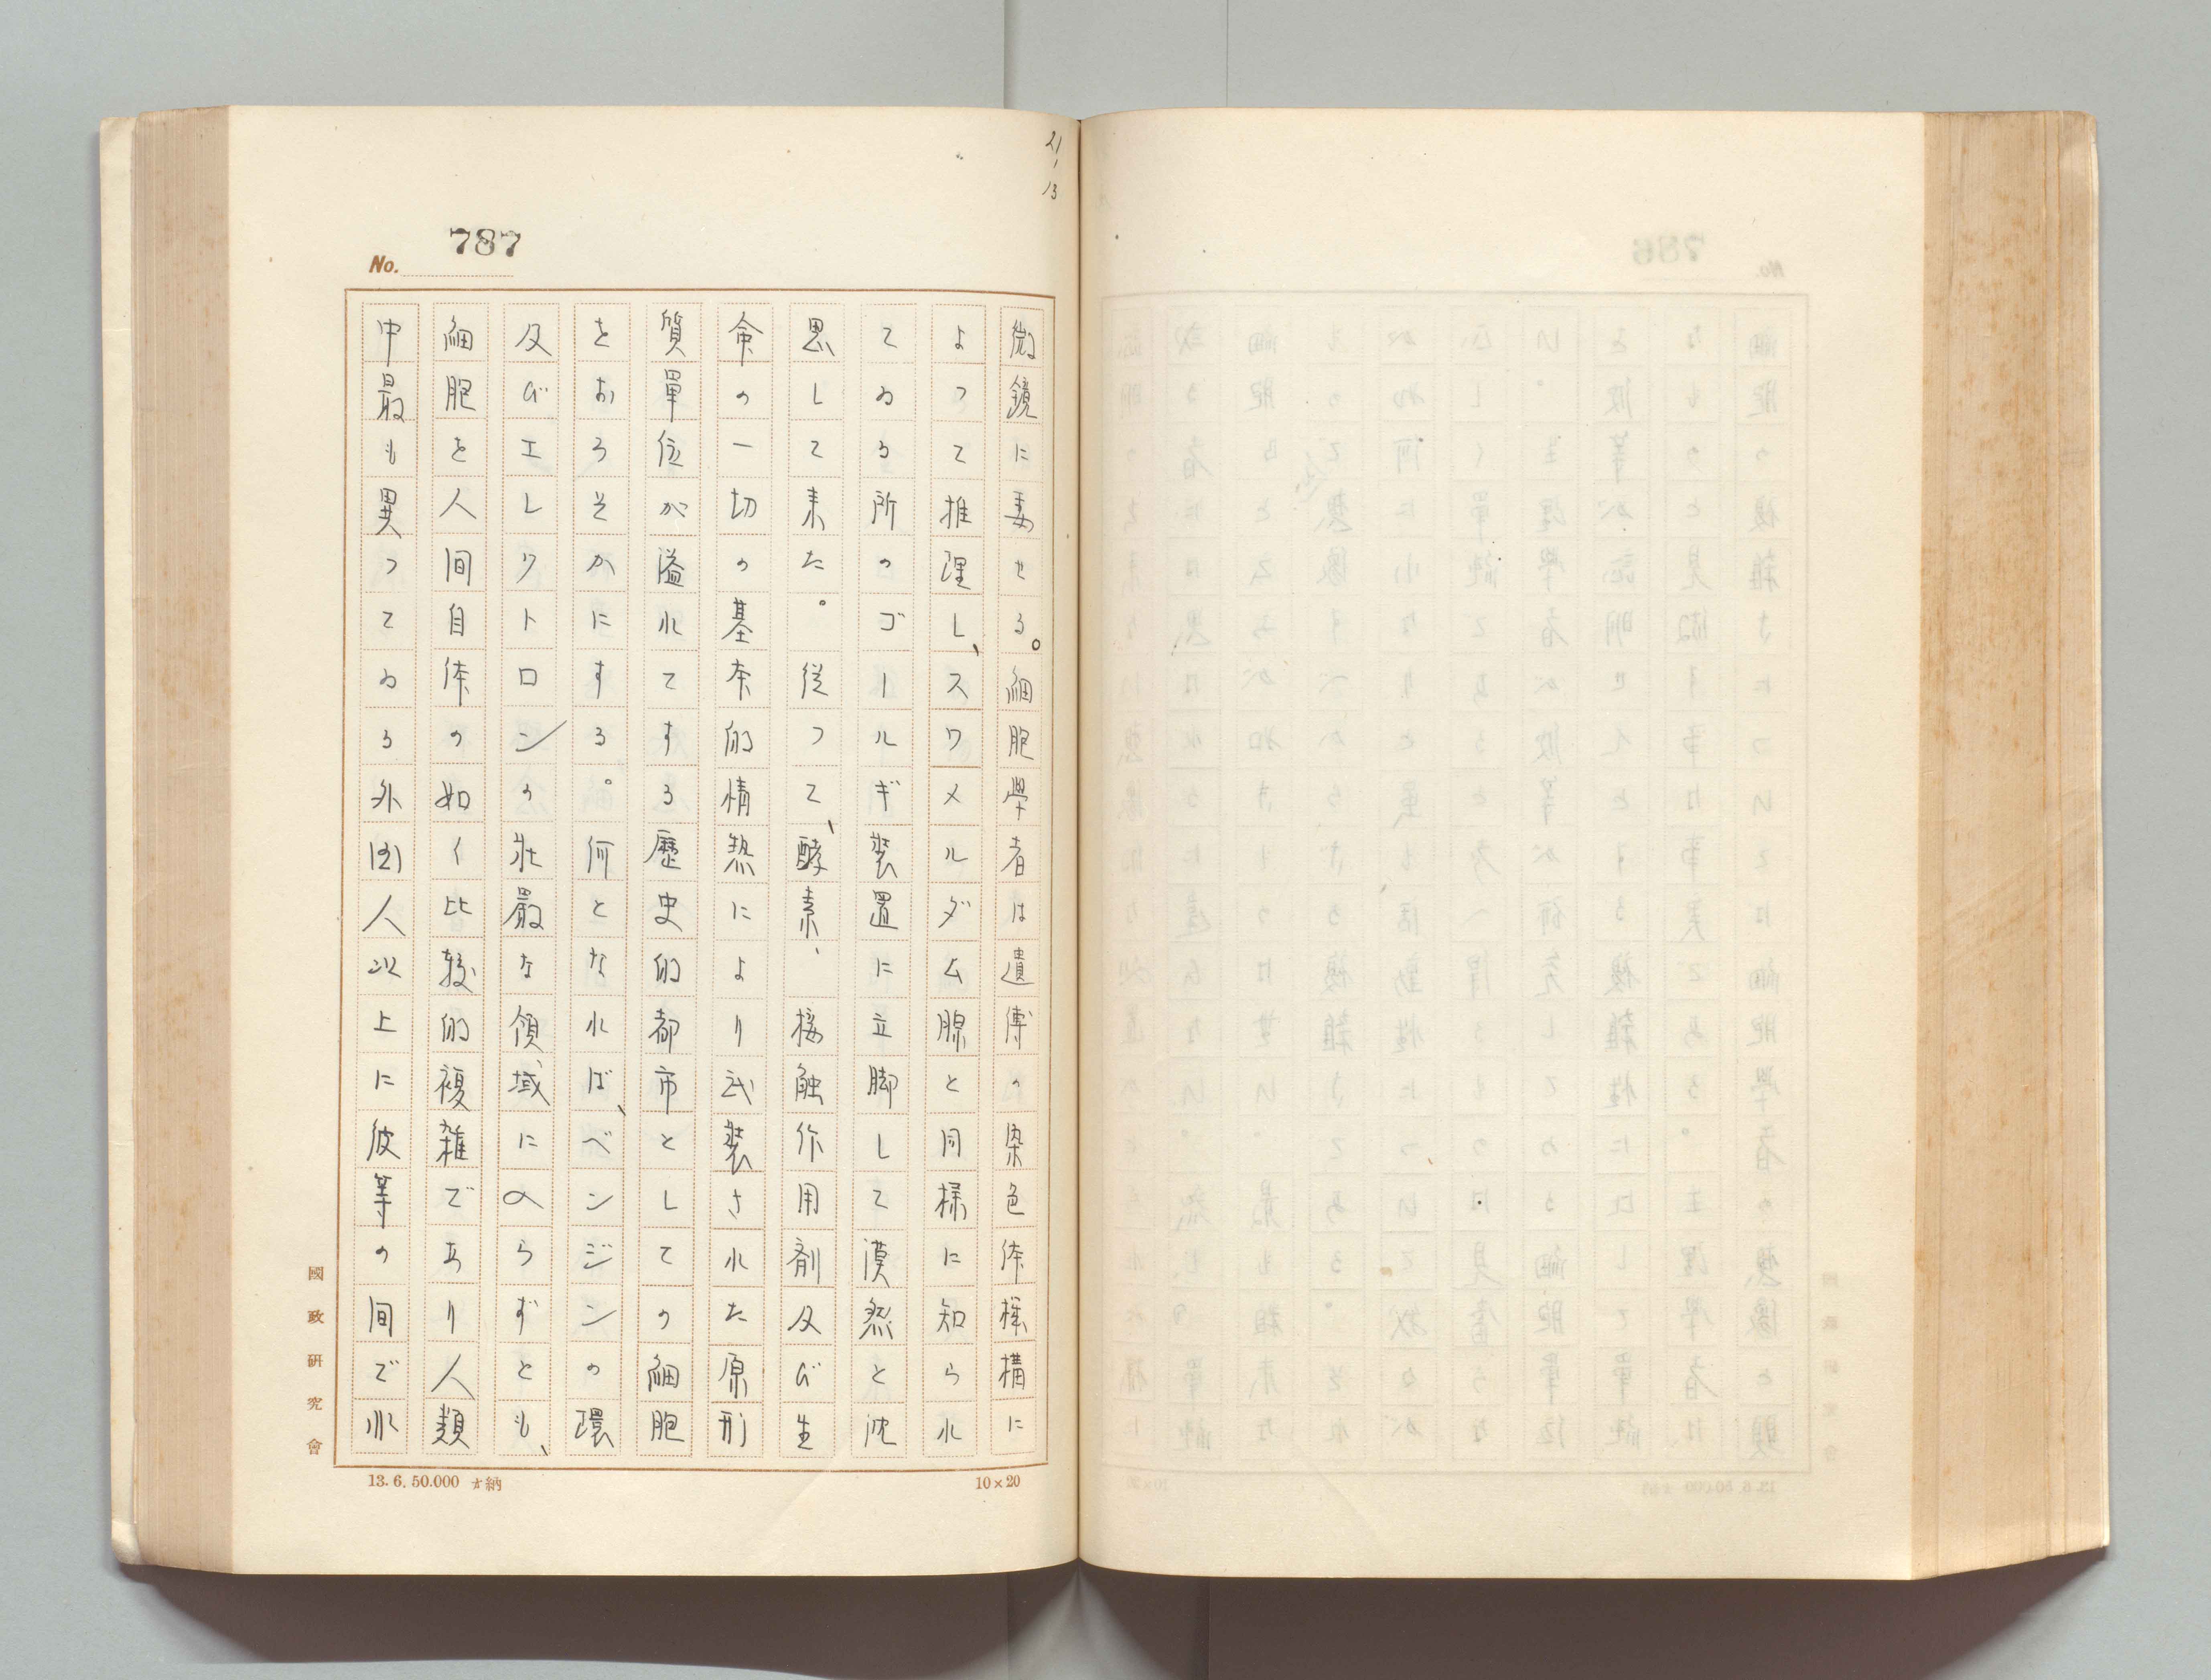 21,
13
No. 787
微鏡に委せる。細胞學者は遺傳の染色体機構に
よつて推理し、スワメルダム腺と同様に知られ
てゐる所のゴールギ装置に立脚して漠然と沈
思して来た。従つて、酵素、接触作用剤及び生
命の一切の基本的情熱により武装された原形
質單位が溢れてする歴史的都市としての細胞
をおろそかにする。何となれば、ベンジンの環
及びエレクトロンの壮嚴な領域に入らずとも、
細胞を人間自体の如く比較的複雑であり人類
中最も異つてゐる外国人以上に彼等の間で水
國政研究會
13.6.50.000 納
10×20